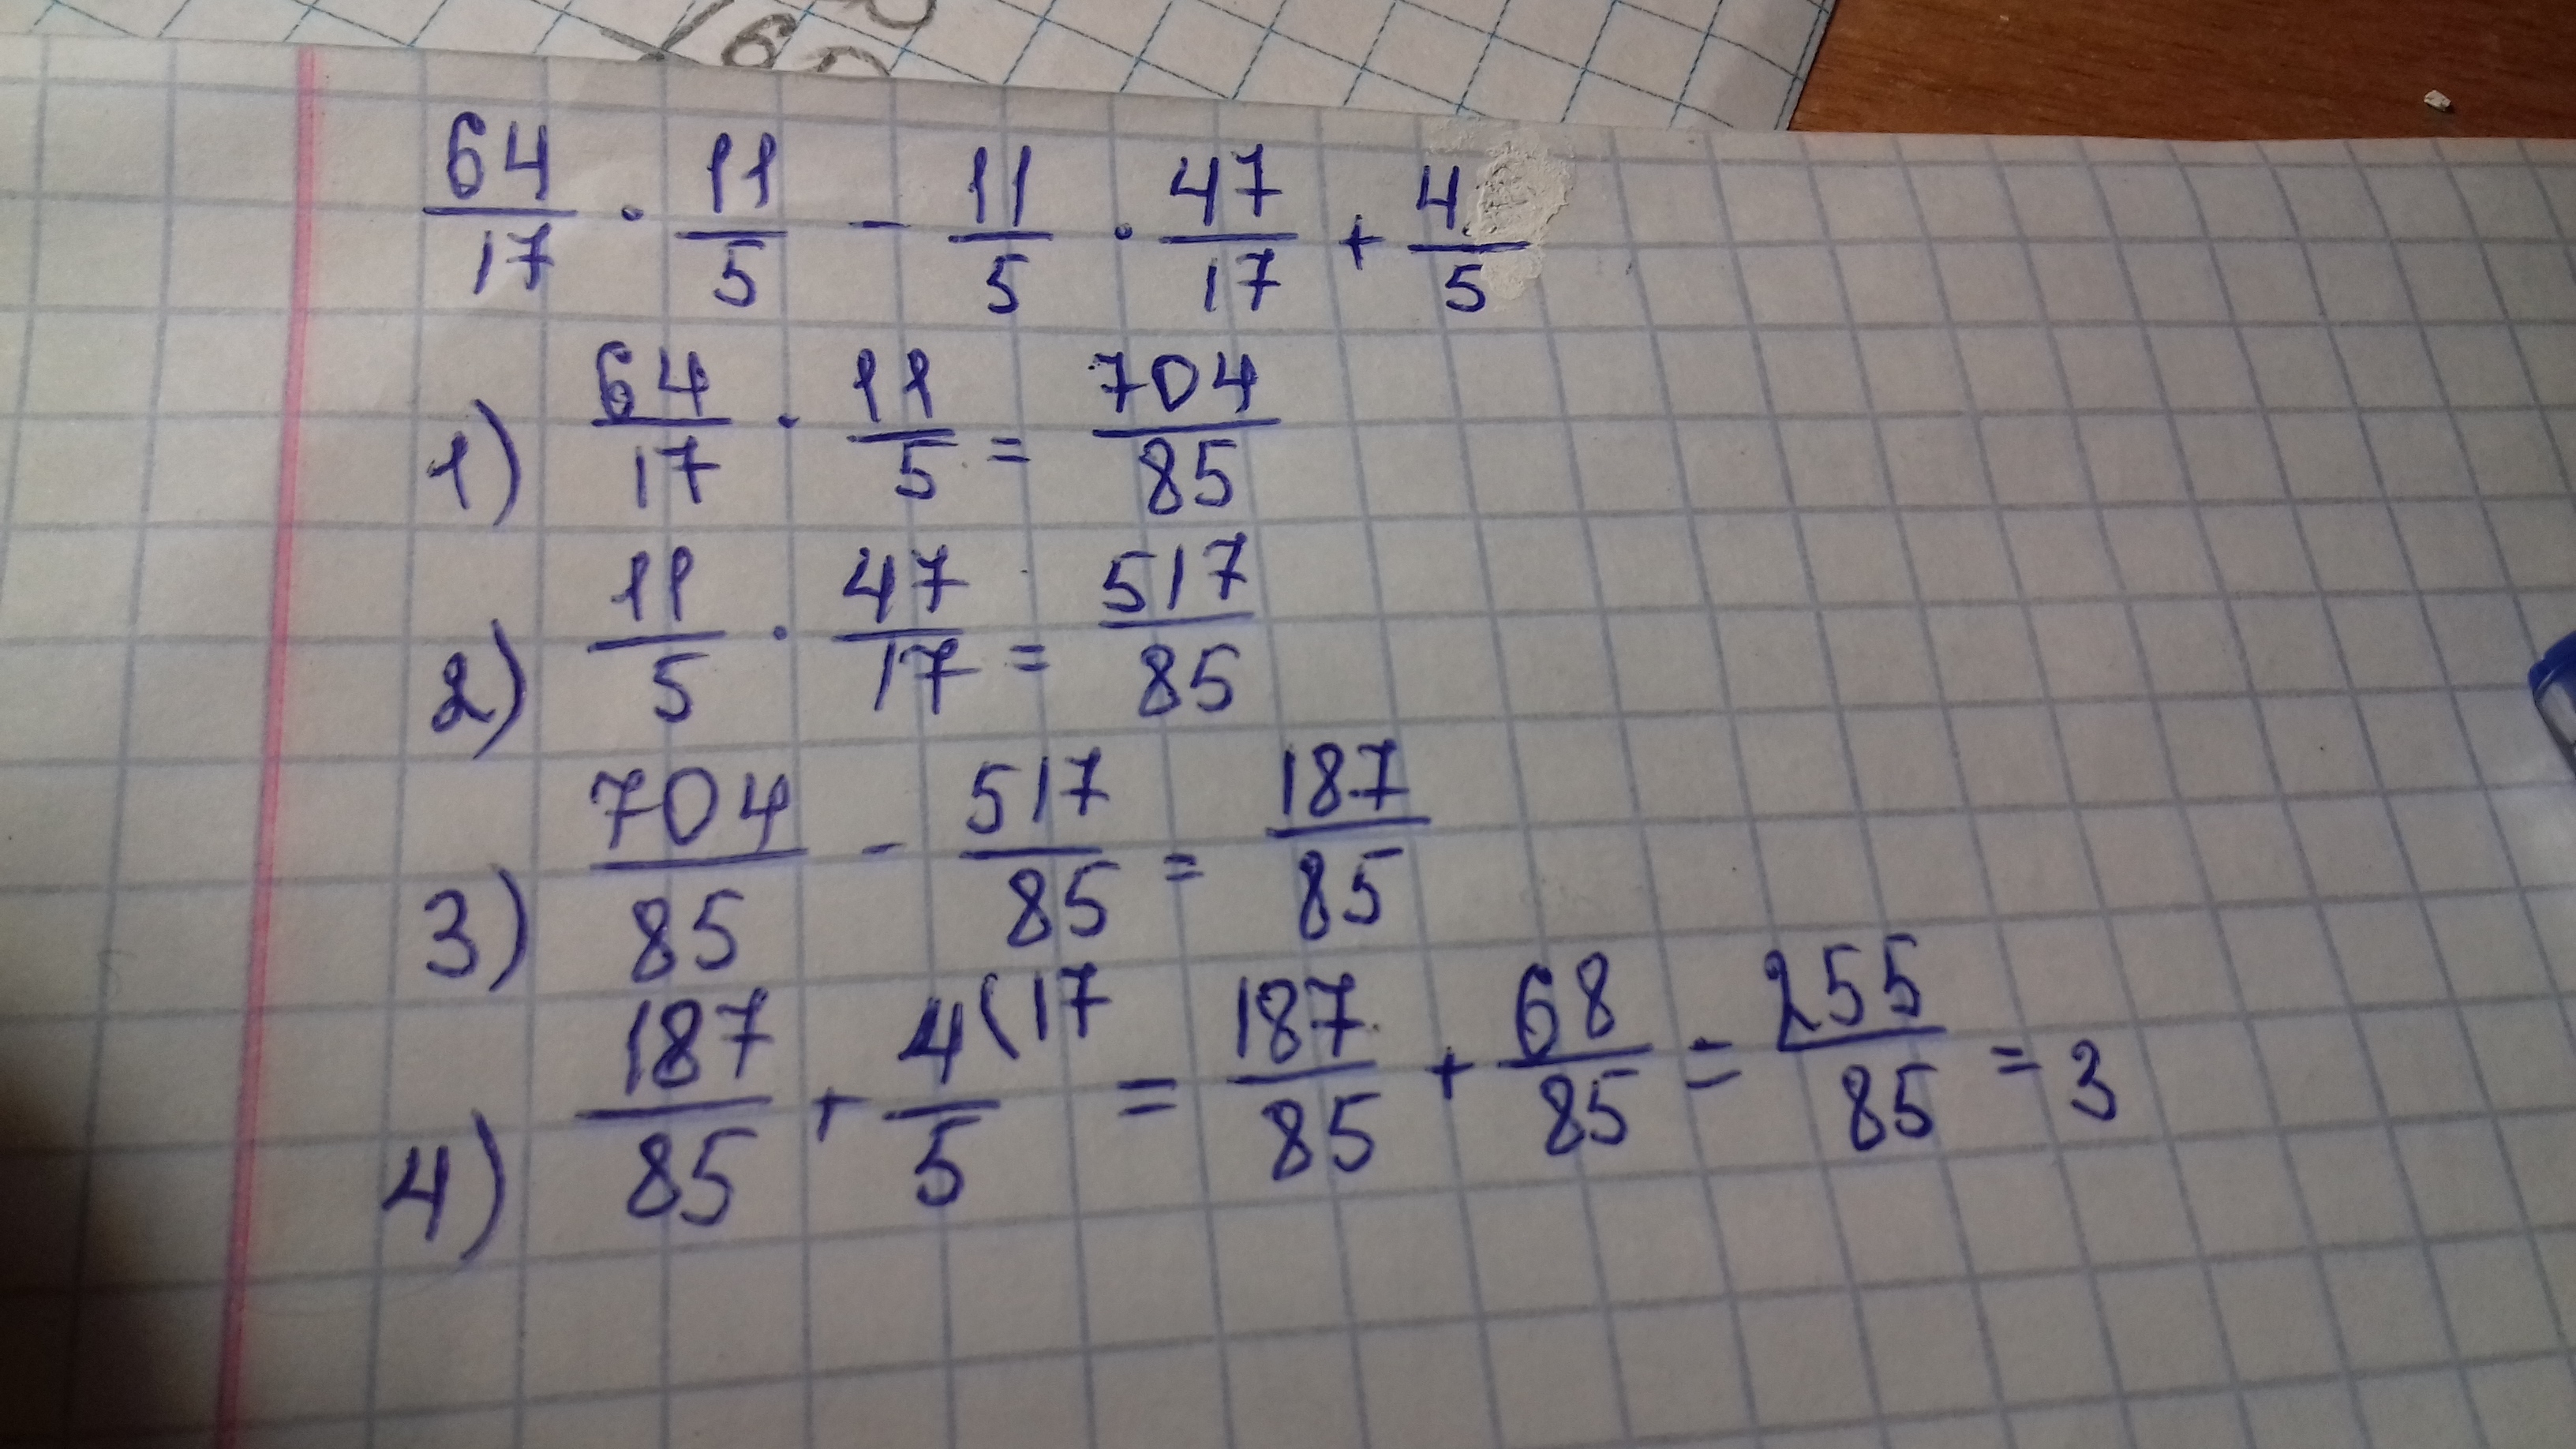 160
64/17 · 11/5 - 11/5 · 47/17 + 4/5
1) 64/17 · 11/5 = 704/85
2) 11/5 · 47/17 = 517/85
3) 704/85 - 517/85 = 187/85
4) 187/85 + 4(17/5 = 187/85 + 68/85 = 255/85 = 3